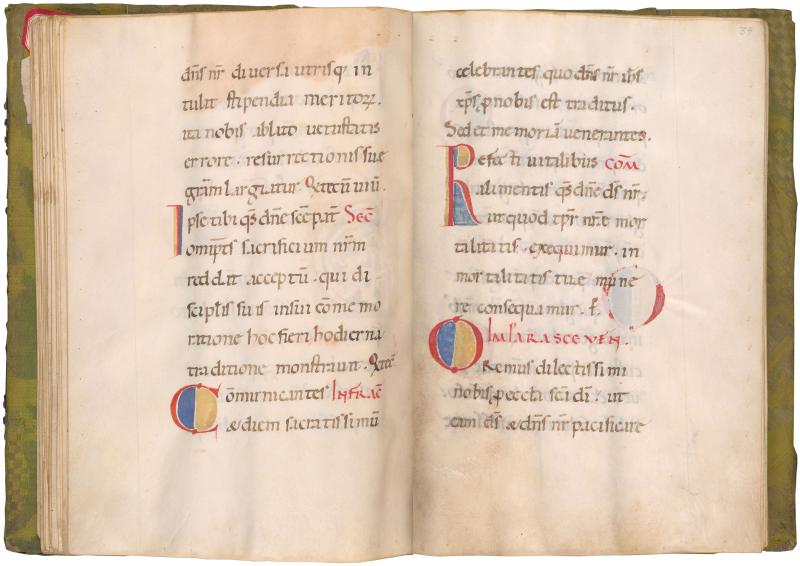 dn̄s nr̄ diversa utrisq; in
tulit stipendia meritoꝝ.
ita nobis ablato vetustatis
errore. resurrectionis suę
grām largiatur. Qui tecū vivi.
Ipse tibi qs̄ dn̄e sc̄e pat̄ Sec̄
omnīps sacrificium nr̄m
reddat acceptū. qui di
scipl̄is suis in sui cōmemo
ratione hoc fieri hodierna
traditione monstravit. Qui tecū
Cōmunicantes Infrac̄
& diem sacratissimū
34
celebrantes. quo dn̄s nr̄ ih̄s
xp̄s p̄ nobis est traditus.
Sed et memoriā venerantes.
Refecti vitalibus cōm
alimentis qs̄ dn̄e ds̄ nr̄.
ut quod tp̄r nr̄e mor
talitatis. exequimur. in
mortalitatis tuę mune
re consequamur. P.
Om̄ī parasceven.
Oremus dilectissimi
nobis p̄ eccl̄a sc̄a dī. ut
eam ds̄ & dn̄s nr̄ pacificare